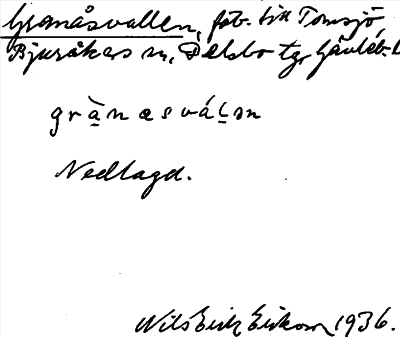 Granåsvallen, fäb. till Tomsjö
Bjuråkers sn, Delsbo tg, Gävleb. l
grànæsváḷən
Nedlagd.
Nils Erik Erikson 1936.